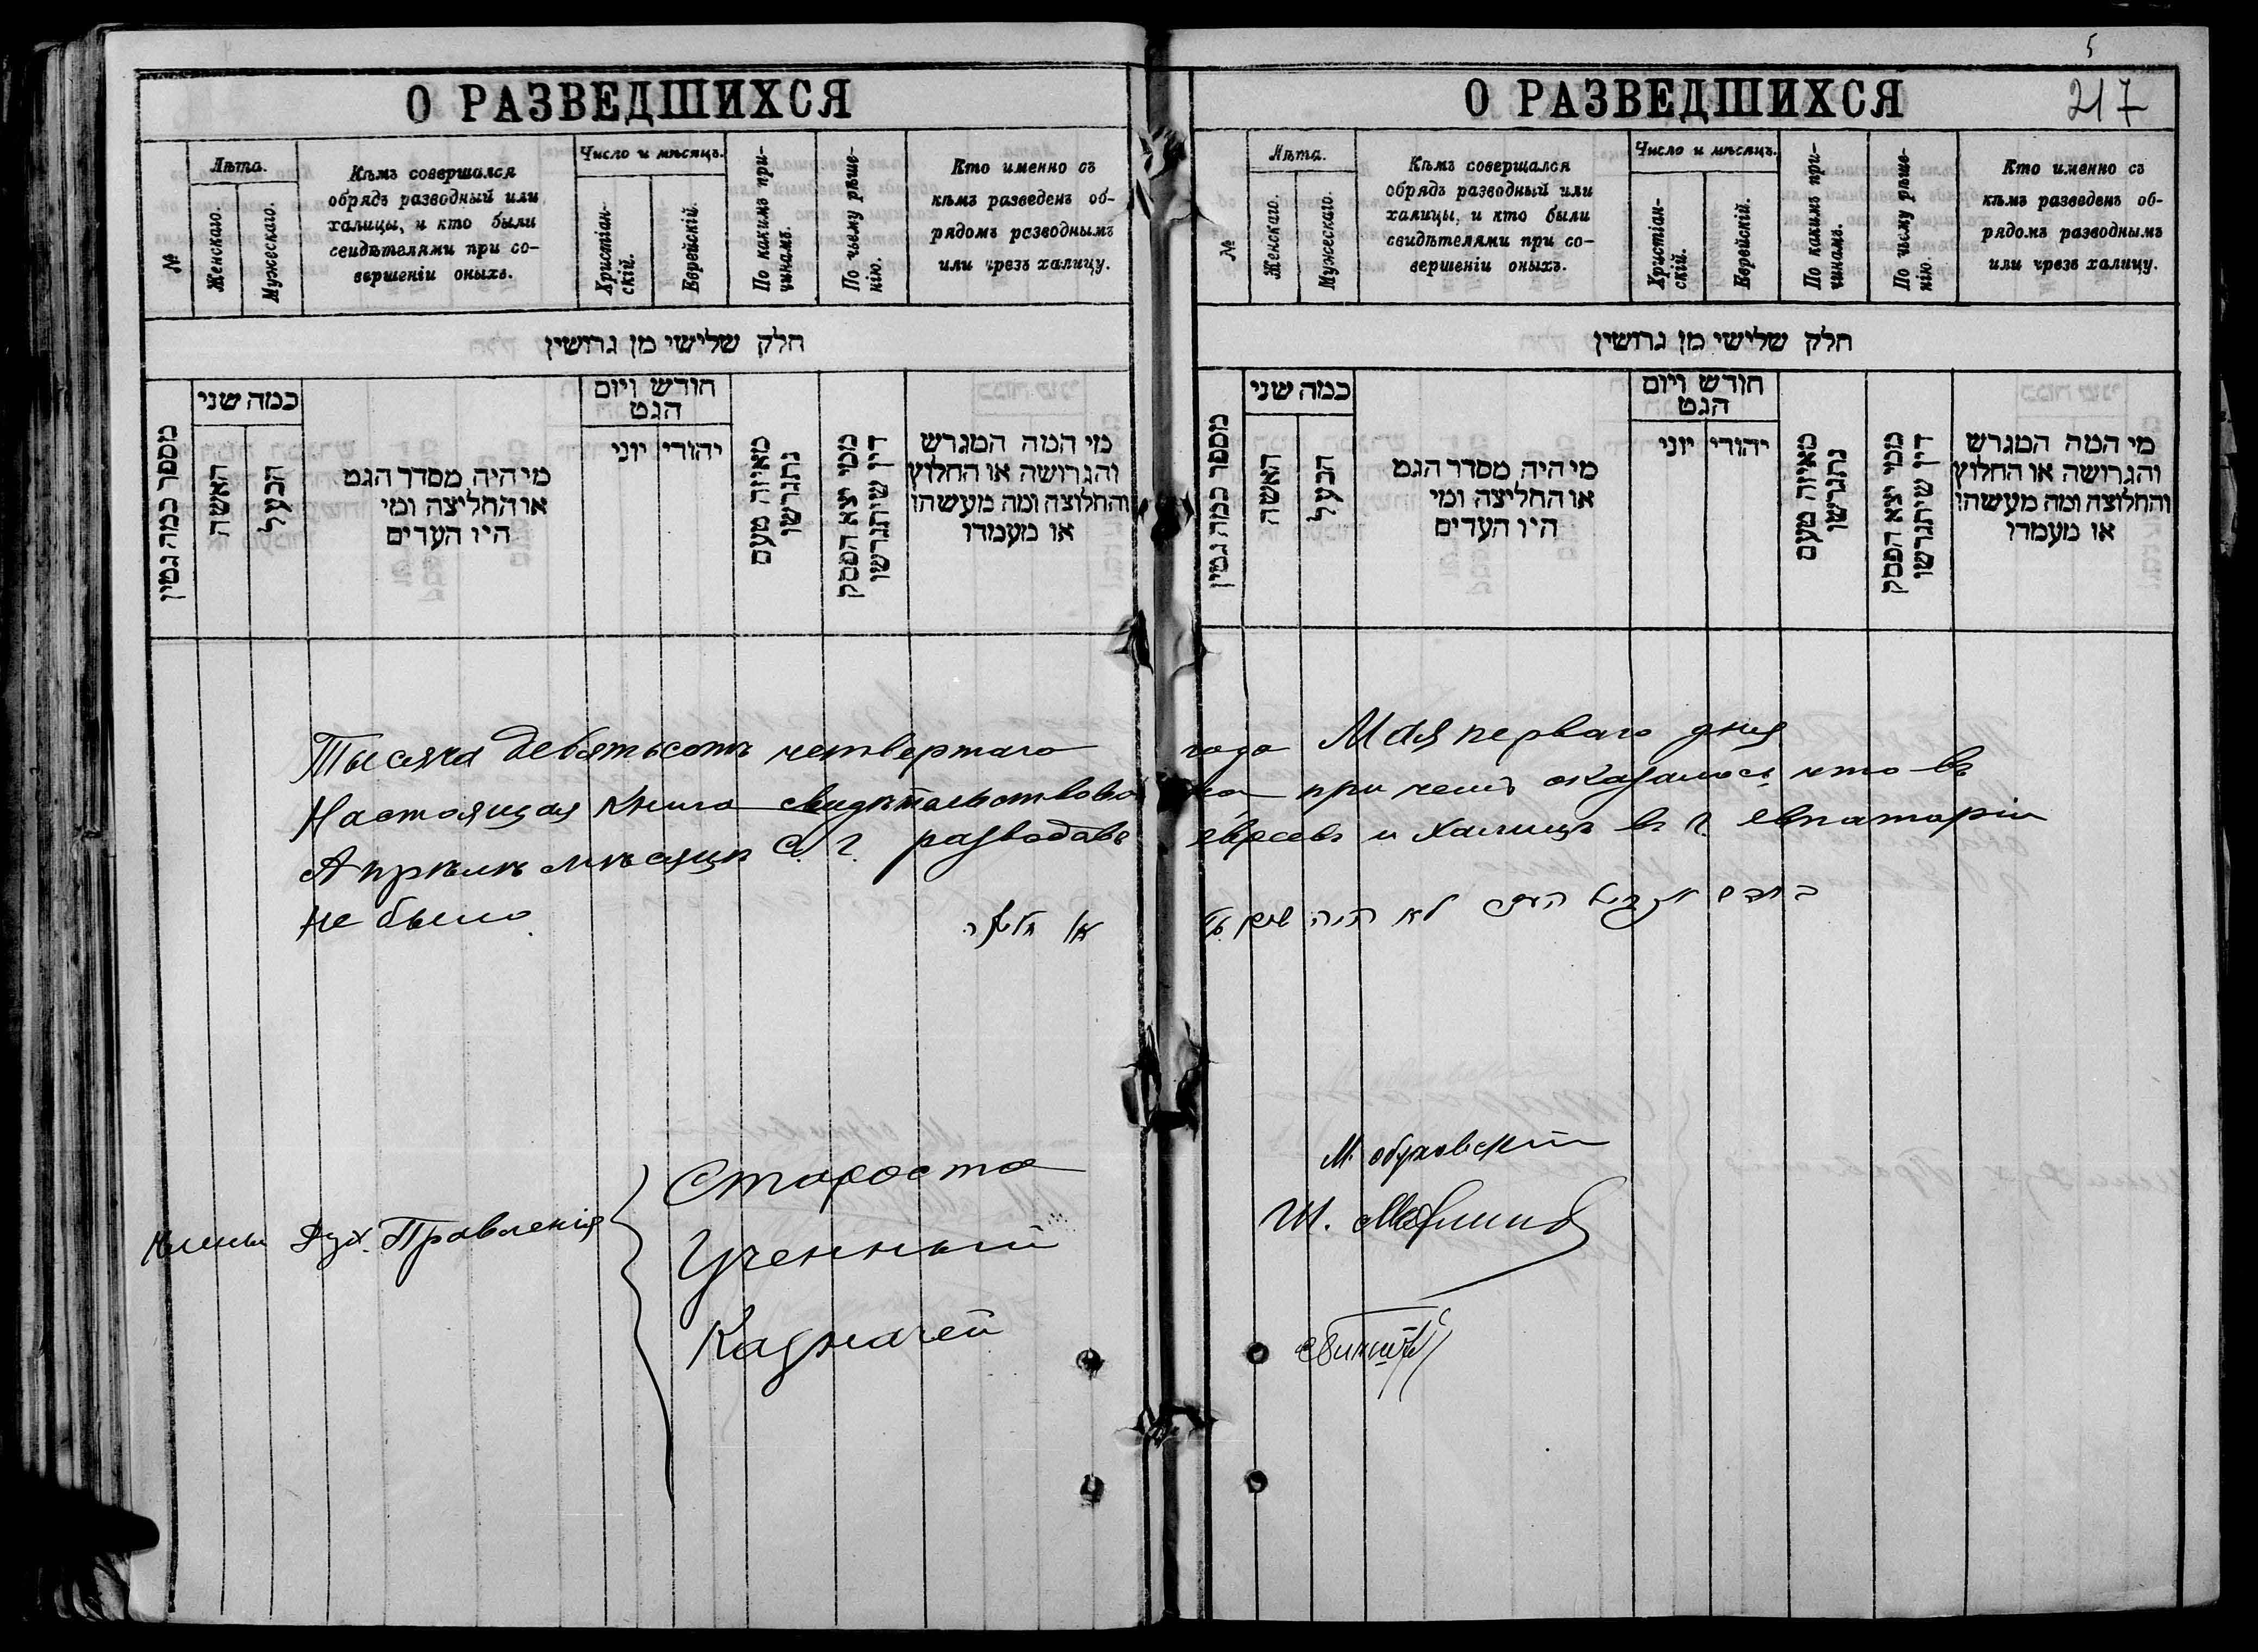 О РАЗВЕДШИХСЯ
№
Лѣта.
Женскаго.
Мужескаго.
Кѣмъ совершался
обрядъ разводный или
халицы, и кто были
свидѣтелями при со-
вершеніи оныхъ.
Число и мѣсяцъ.
Христіан-
скій.
Еврейскій.
По какимъ при-
чинамъ.
По чьему рѣше-
нію.
Кто именно съ
кѣмъ разведенъ об-
рядомъ розводнымъ
или чрезъ халицу.
חלק שלישי מן גרושין
מספר כמה גטין
כמה שני
האשה
הבעל
מי היה מסדר הגט
או החליצה ומי
היו העדים
חודש ויום
הגט
יהודי
יוני
מאיזה טעם
נתגרשו
ממי יצא הפסק
דין שיתגרשו
מי המה המגרש
והגרושה או החלוץ
והחלוצה ומה מעשהו
או מעמדו
О РАЗВЕДШИХСЯ
5
217
№
Лѣта.
Женскаго.
Мужескаго.
Кѣмъ совершался
обрядъ разводный или
халицы, и кто были
свидѣтелями при со-
вершеніи оныхъ.
Число и мѣсяцъ.
Христіан-
скій.
Еврейскій.
По какимъ при-
чинамъ.
По чьему рѣше-
нію.
Кто именно съ
кѣмъ разведенъ об-
рядомъ разводнымъ
или чрезъ халицу.
חלק שלישי מן גרושין
מספר כמה גטין
כמה שני
האשה
הבעל
מי היה מסדר הגט
או החליצה ומי
היו העדים
חודש ויום
הגט
יהודי
יוני
מאיזה טעם
נתגרשו
ממי יצא הפסק
דין שיתגרשו
מי המה המגרש
והגרושה או החלוץ
והחלוצה ומה מעשהו
או מעמדו
Тысяча девятьсотъ четвертаго года Мая перваго дня
Настоящая книга свидѣтельствована при чемъ оказалось что въ
Апрѣлѣ мѣсяцѣ с. г. разводовъ евреевъ и халицъ въ г. Евпаторіи
не было
לא היה שום
Члены Дух. Правленія
Староста М. Обуховскій
Ученный Ш.
Казначей